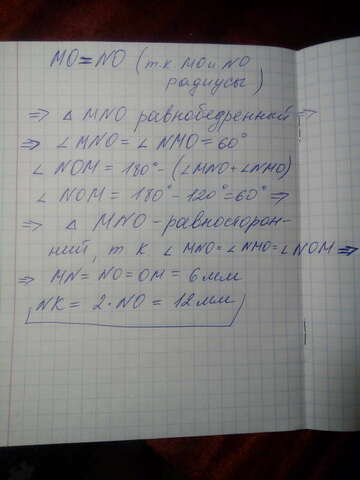 MO = NO (т.к MO и NO
радиусы)
⇒ △ MNO равнобедренный ⇒
⇒ ∠ MNO = ∠ NMO = 60°
∠ NOM = 180° - (∠MNO + ∠NMO)
∠ NOM = 180° - 120° = 60° ⇒
⇒ △ MNO - равносторон-
ний, т к ∠ MNO = ∠ NMO = ∠ NOM ⇒
⇒ MN = NO = OM = 6 мм
NK = 2 · NO = 12 мм